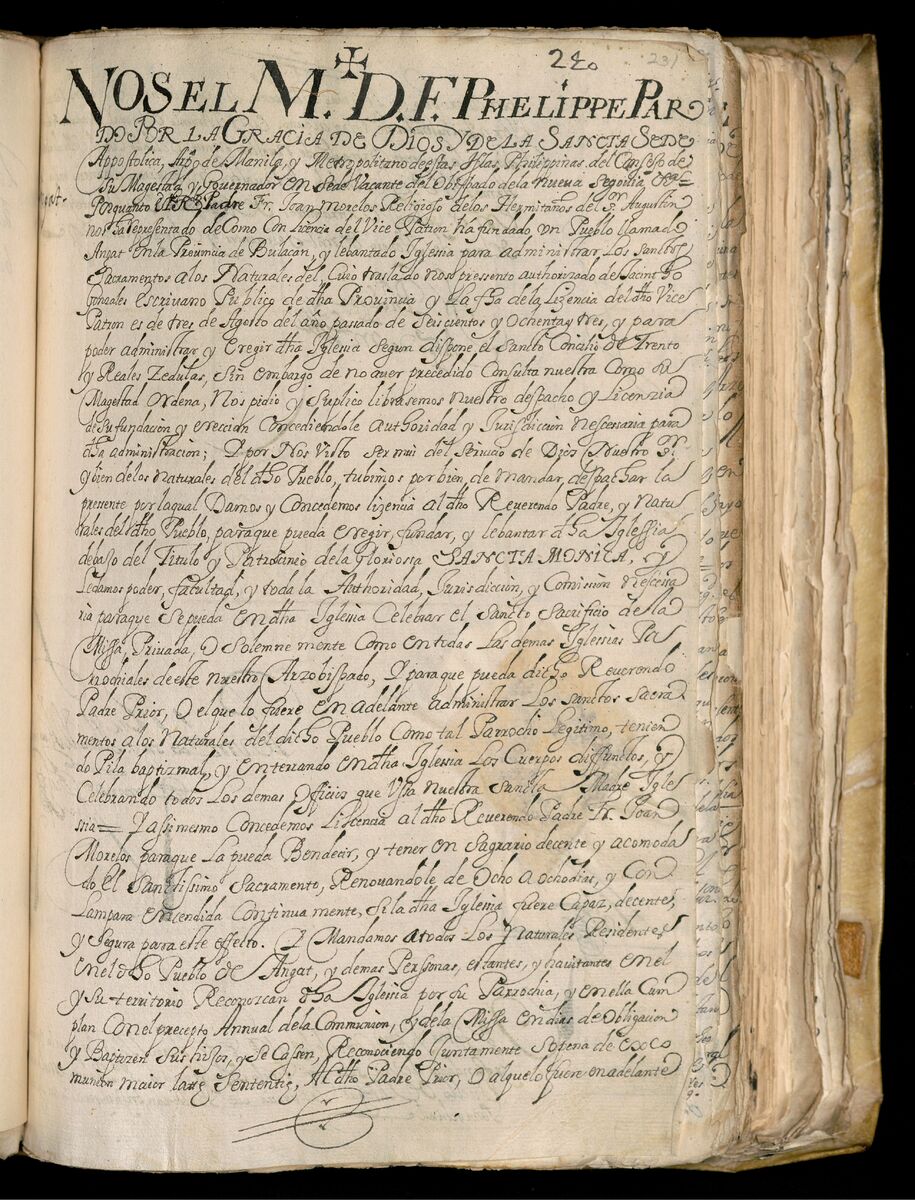 240
231
NOS EL M.º D. F. PHELIPPE PAR
DO POR LA GRACIA DE DIOS Y DE LA SANCTA SEDE
Appostolica, Arpō de Manila, y Metropolitano de estas Yslas Philippinas del Consejo de
Su Magestad y Governador en Sede Vacante del Obispado de la nueva Segovia, &ª =
Porquanto el Rdo Padre Fr. Joan Morelos Religioso de los Hermitaños del Sr. Augustin
nos ha representado de Como Con Licencia del Vice Patron ha fundado un Pueblo llamado
Angat en la Provincia de Bulacan, y lebantado Iglesia para administrar Los Sanctos
Sacramentos a los Naturales del, Cuio traslado nos pressento authorizado de Jacintho
Gonzales escrivano Publico de dha Provincia y La fha de la Lizencia del dho Vice
Patron es de tres de Agosto del año passado de Seiscientos y Ochenta y tres, y para
poder administrar y Eregir dha Iglesia Segun dispone el Sancto Concilio de Trento
y Reales Zedulas, Sin embargo de no aver precedido Consulta nuestra Como Su
Magestad Ordena, Nos pidio y Suplico librasemos nuestro despacho y Licenzia
de Su fundacion y ereccion Concediendole Authoridad y Jurisdiccion nescesaria para
dha administracion; Y por Nos Visto Ser mui del Servicio de Dios Nuestro Sr.
y bien de los naturales del dho Pueblo, tubimos por bien, de mandar despachar la
presente por la qual Damos y Concedemos lizencia al dho Reverendo Padre, y Natu
rales del dho Pueblo, para que pueda eregir, fundar, y lebantar dha Iglessia
debaxo del Titulo y Patrocinio de la Gloriossa SANCTA MONICA, Y
Le damos poder, facultad, y toda la Authoridad, Jurisdiccion, y Comission nescesa
ria para que Se pueda en dha Iglesia Celebrar el Sancto Sacrificio de la
Missa, Privada, O Solemnemente Como en todas Las demas Iglesias Pa
rrochiales de este nuestro Arzobispado, Y para que pueda dicho Reverendo
Padre Prior, O el que lo fuere en adelante administrar Los Sanctos Sacra
mentos a los Naturales del dicho Pueblo Como tal Parrocho Legitimo, tenien
do Pila baptizmal, y enterrando en dha Iglesia Los Cuerpos diffunctos, y
Celebrando todos Los demas Officios que Usa nuestra Sancta Madre Igle
sia = Y assimesmo Concedemos Liscencia al dho Reverendo Padre Fr. Joan
Morelos para que La pueda Bendecir, y tener en Sagrario decente y acomoda
do El Sanctissimo Sacramento, Renovandole de Ocho a ocho dias, y Con
Lampara encendida Continuamente, Si la dha Iglesia fuere Capaz, decente,
y Segura para este effecto. Y Mandamos a todos Los Naturales Residentes
en el dho Pueblo de Angat, y demas Personas, estantes, y havitantes en el
y Su territorio Reconozcan dha Iglesia por Su Parrochia, y en ella Cum
plan Con el precepto Annual de la Communion, y de la Missa en dias de Obligacion
y Baptizen Sus hijos, y Se Cassen, Reconociendo Juntamente Sopena de Exco
munion maior latæ Sententiæ, Al dho Padre Prior, O al que lo fuere en adelante